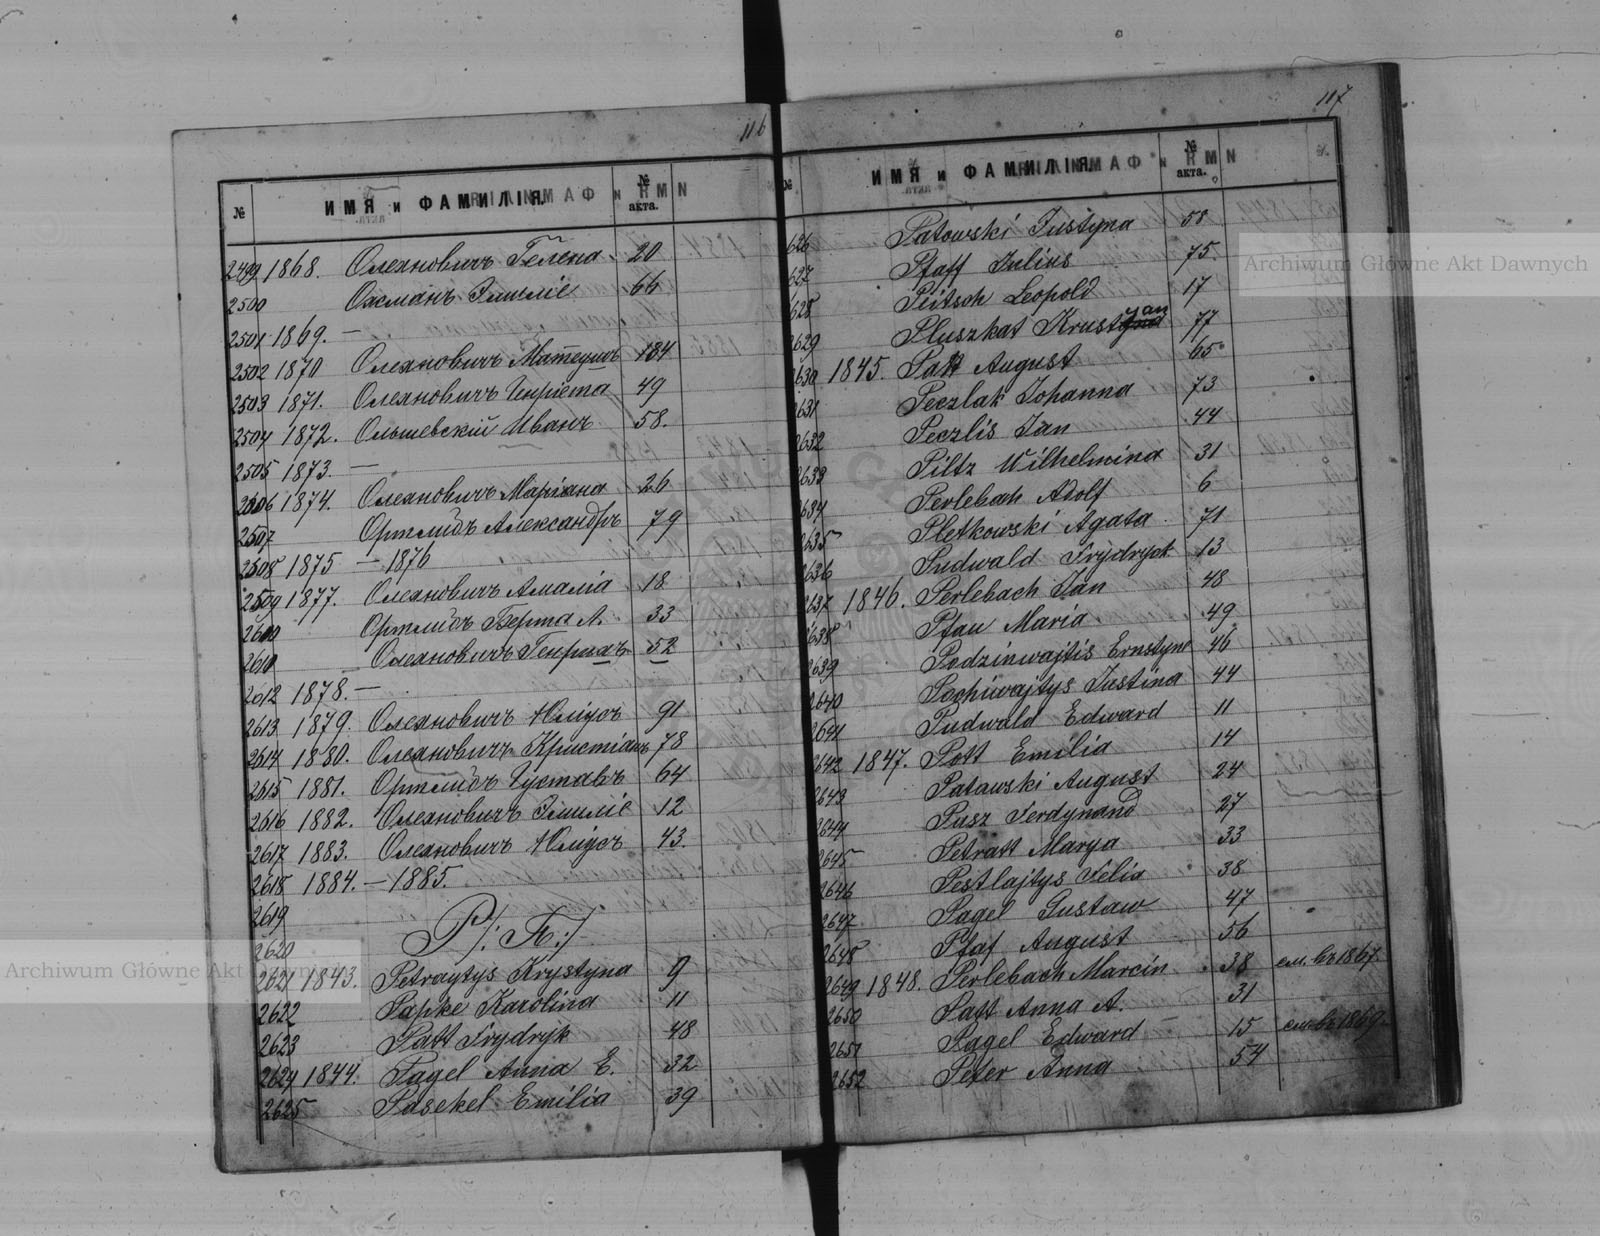 116
№ ИМЯ и ФАМИЛІЯ. № акта.
2499 1868. Олехновичъ Гелена 20
2500 Охманъ Эмиліе 66
2501 1869. —
2502 1870 Олехновичъ Матеушъ 184
2503 1871. Олехновичъ Генріета 49
2504 1872. Ольшевскій Иванъ 58.
2505 1873. —
2506 1874. Олехновичъ Маріана 26
2507 Ортлибъ Александръ 79
2508 1875 — 1876
2509 1877. Олехновичъ Амалія 18
2610 Ортлибъ Берта А. 33
2611 Олехновичъ Генрихъ 52
2612 1878. —
2613 1879. Олехновичъ Юліусъ 91
2614 1880. Олехновичъ Христіанъ 78
2615 1881. Ортлибъ Густавъ 64
2616 1882. Олехновичъ Эмиліе 12
2617 1883. Олехновичъ Юліусъ 43.
2618 1884. — 1885.
2619
2620 P/: П:/
2621 1843. Petraytys Krystyna 9
2622 Papke Karolina 11
2623 Patt Frydryk 48
2624 1844. Pagel Anna E. 32
2625 Pasekel Emilia 39
117
№ ИМЯ и ФАМИЛІЯ. № акта.
626 Patowski Justyna 58
627 Pfaff Julius 75
628 Peitsch Leopold 17
2629 Pluszkat Krustyan 77
2630 1845. Patt August 65
2631 Peczlak Johanna 73
2632 Peczlis Jan 44
2633 Piltz Wilhelmina 31
2634 Perlebach Adolf 6
2635 Pletkowski Agata 71
2636 Pudwald Frydryck 13
2637 1846. Perlebach Jan 48
2638 Pfau Maria 49
2639 Podzinwajtis Ernstyne 46
2640 Pochiwajtys Justina 44
2641 Pudwald Edward 11
2642 1847. Pott Emilia 14
2643 Patawski August 24
2644 Pusz Ferdynand 27
2645 Petratt Marya 33
2646 Pestlajtys Felia 38
2647 Pagel Gustaw 47
2648 Pfaf August 56
2649 1848. Perlebach Marcin 38 см. въ 1867.
2650 Patt Anna A. 31
2651 Pagel Edward 15 см. въ 1869.
2652 Peter Anna 54
Archiwum Główne Akt Dawnych
Archiwum Główne Akt Dawnych